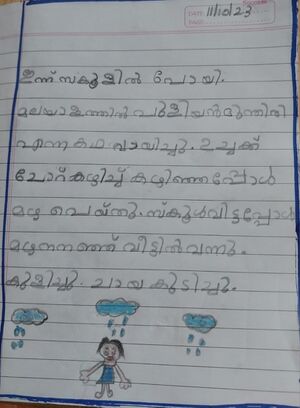 DATE: 11/10/23
PAGE:
ഇന്ന് സ്കൂളിൽ പോയി.
മലയാളത്തിൽ പുളിയൻമുന്തിരി
എന്ന കഥ വായിച്ചു. ഉച്ചക്ക്
ചോറ്കഴിച്ച് കഴിഞ്ഞപ്പോൾ
മഴ പെയ്തു. സ്കൂൾവിട്ടപ്പോൾ
മഴനനഞ്ഞ് വീട്ടിൽ വന്നു.
കുളിച്ചു. ചായ കുടിച്ചു.